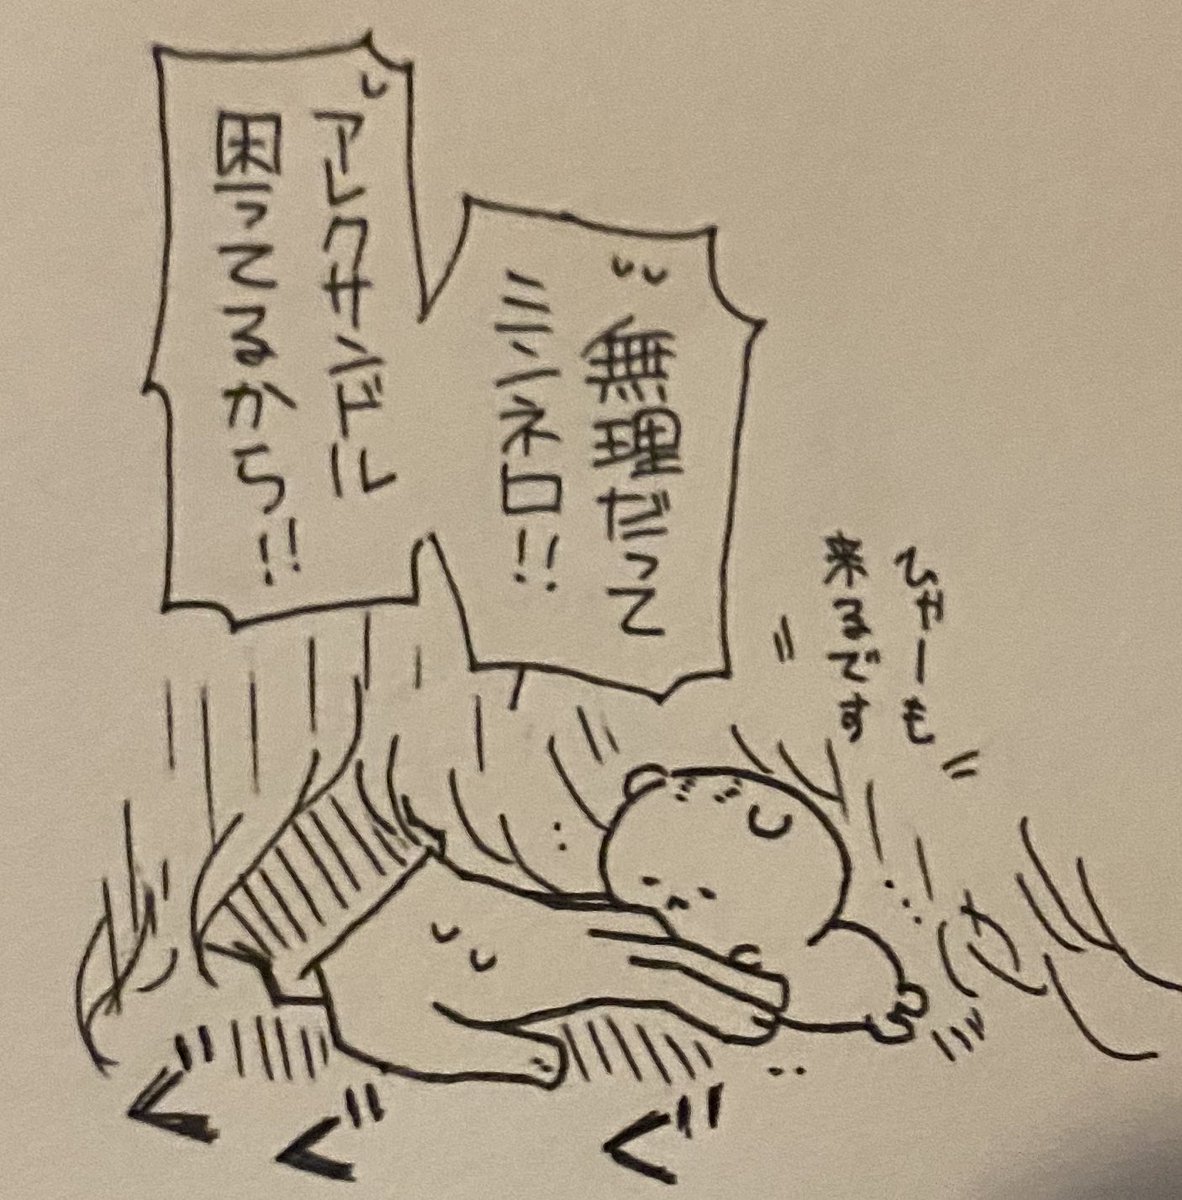 ひゃーも
来るです
無理だって
ミンネロ!!
アレクサンデル
困ってるから!!
ぐぐぐ